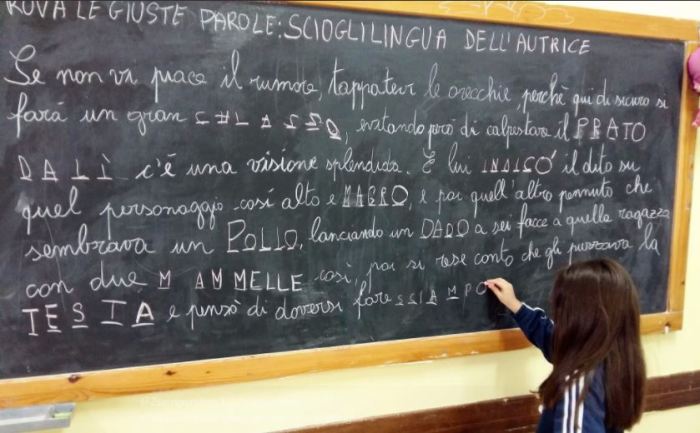 ROVA LE GIUSTE PAROLE: SCIOGLILINGUA DELL'AUTRICE
Se non vi piace il rumore, tappatevi le orecchie, perchè qui di sicuro si
farà un gran CHIASSO, evitando però di calpestare il PRATO
DA LÌ c'è una visione splendida. E lui INDICÒ il dito su
quel personaggio così alto e MAGRO, e poi quell'altro pennuto che
sembrava un POLLO, lanciando un DADO a sei facce a quella ragazza
con due MAMMELLE così, poi si rese conto che gli puzzava la
TESTA e pensò di doversi fare SCIAMPO